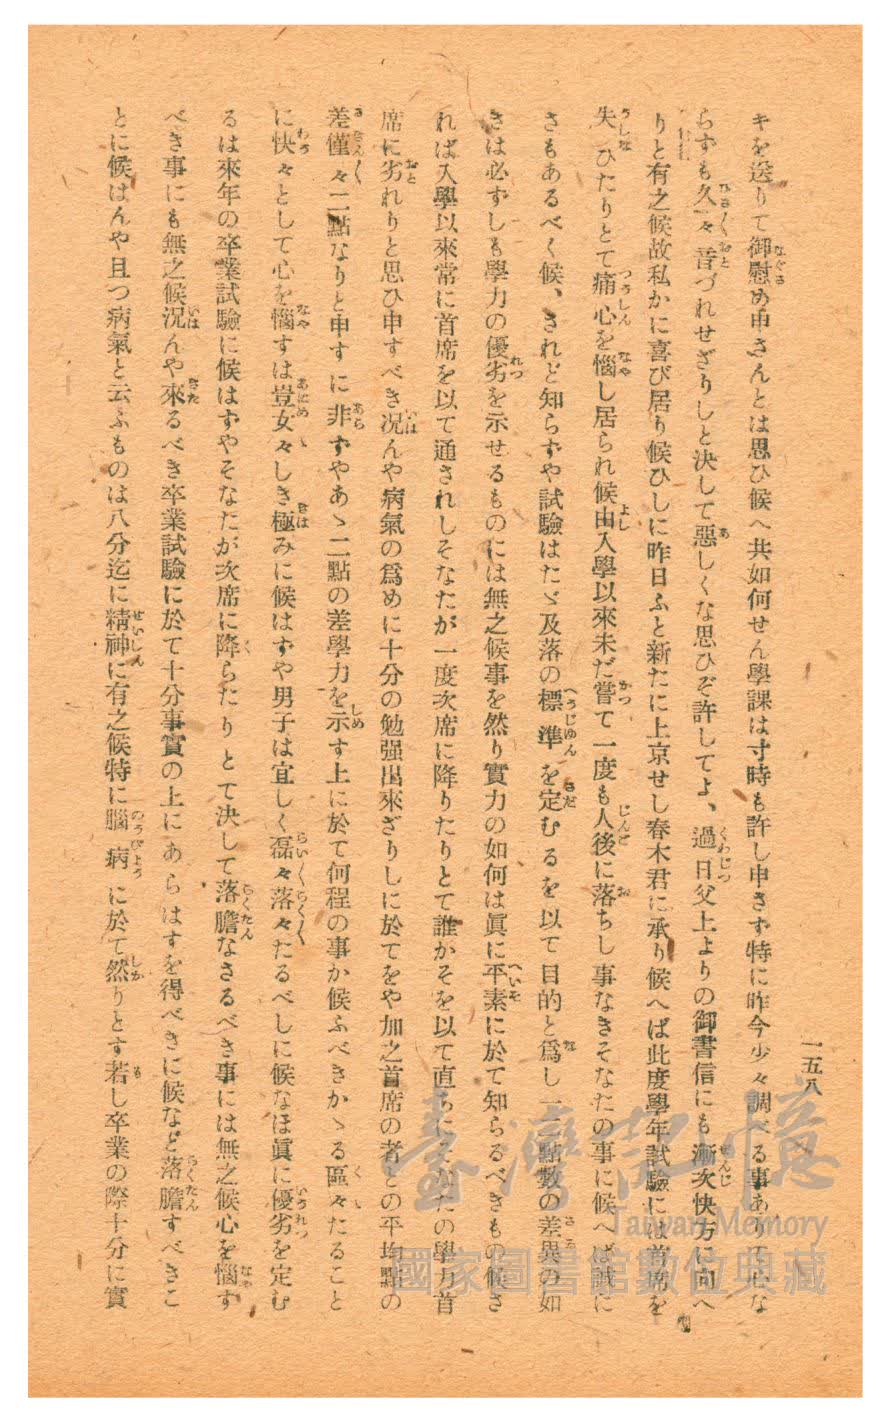 一五八
キを送りて御慰め申さんとは思ひ候へ共如何せん學課は寸時も許し申さず特に昨今少々調べる事ありて心な
らずも久々音づれせざりしと決して惡しくな思ひぞ許してよ、過日父上よりの御書信にも漸次快方に向へ
りと有之候故私かに喜び居り候ひしに昨日ふと新たに上京せし春木君に承り候へば此度學年試驗には首席を
失ひたりとて痛心を惱し居られ候由入學以來未だ嘗て一度も人後に落ちし事なきそなたの事に候へば誠に
さもあるべく候、されど知らずや試驗はたゞ及落の標準を定むるを以て目的と爲し一二點數の差異の如
きは必ずしも學力の優劣を示せるものには無之候事を然り實力の如何は眞に平素に於て知らるべきもの候さ
れば入學以來常に首席を以て通されしそなたが一度次席に降りたりとて誰かそを以て直ちにそなたの學力首
席に劣れりと思ひ申すべき况んや病氣の爲めに十分の勉强出來ざりしに於てをや加之首席の者との平均點の
差僅々二點なりと申すに非ずやあゝ二點の差學力を示す上に於て何程の事か候ふべきかゝる區々たること
に怏々として心を惱すは豈女々しき極みに候はずや男子は宜しく磊々落々たるべしに候なほ眞に優劣を定む
るは來年の卒業試驗に候はずやそなたが次席に降らたりとて決して落膽なさるべき事には無之候心を惱す
べき事にも無之候况んや來るべき卒業試驗に於て十分事實の上にあらはすを得べきに候など落膽すべきこ
とに候はんや且つ病氣と云ふものは八分迄に精神に有之候特に腦病に於て然りとす若し卒業の際十分に實
臺灣記憶
Taiwan Memory
國家圖書館數位典藏